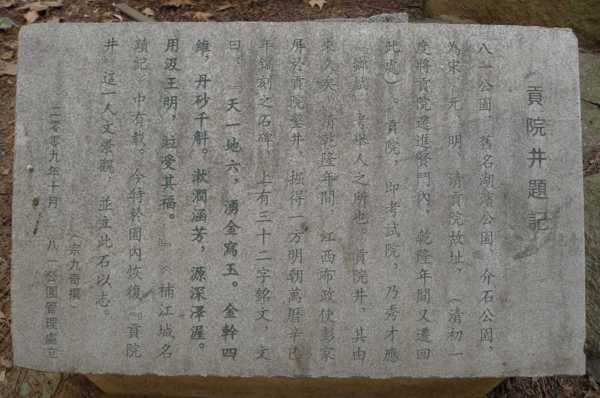 貢院井題記
八一公園，舊名湖濱公園、介石公園，
為宋、元、明、清貢院故址，（清初一
度將貢院遷進賢門內，乾隆年間又遷回
此處）。貢院，即考試院，乃秀才應
『鄉試』考舉人之所也。貢院井，其由
來久矣。清乾隆年間，江西布政使彭家
屏於貢院鑿井，掘得一方明朝萬曆辛巳
年鐫刻之石碑，上有三十二字銘文，文
曰：『天一地六，湧金寫玉。金幹四
維，丹砂千斛。漱潤涵芳，源深澤渥。
用汲王明，竝受其福。』《補江城名
蹟記》中有載。今特於園內恢復『貢院
井』這一人文景觀，並立此石以志。
（宗九奇撰）
二零零九年十月 八一公園管理處立